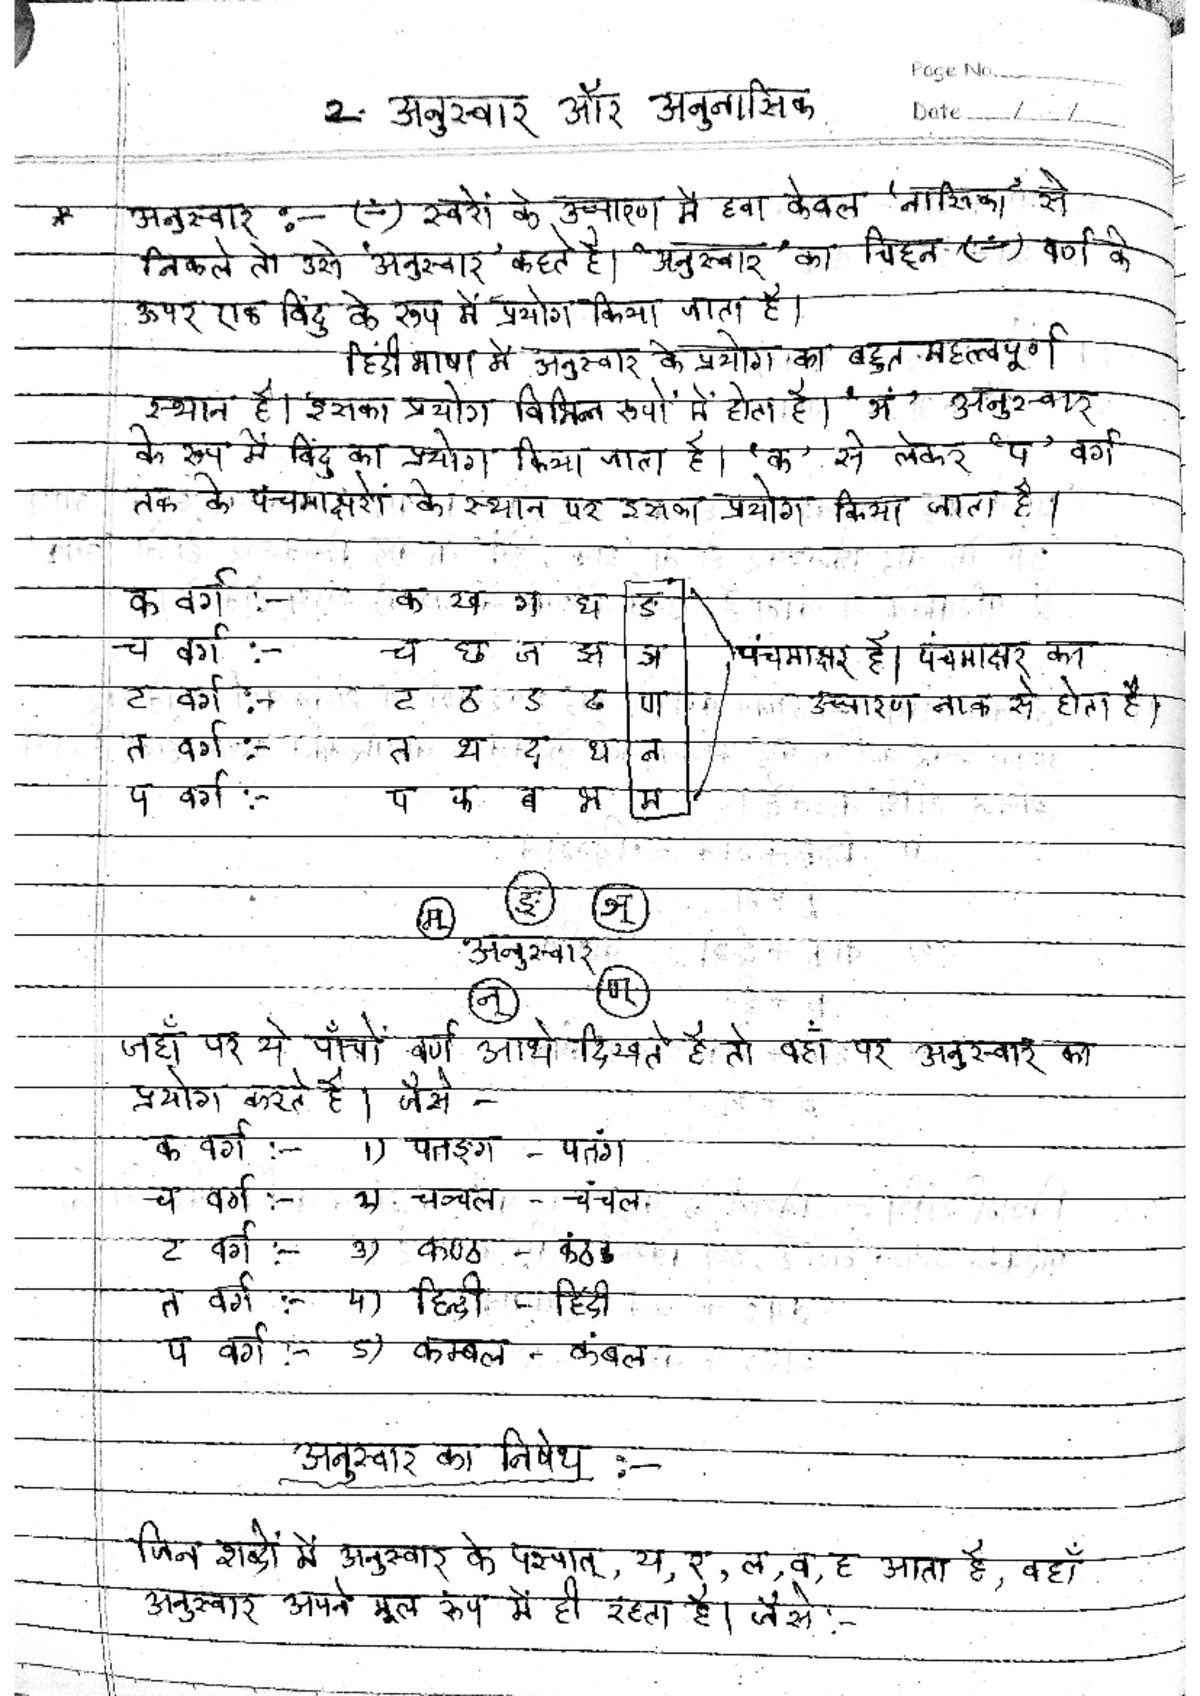 Page No.
2. अनुस्वार और अनुनासिक
Date / /
* अनुस्वार :- (ं) स्वरों के उच्चारण में हवा केवल 'नासिका' से
निकले तो उसे 'अनुस्वार' कहते है। 'अनुस्वार' का चिह्न (ं) वर्ण के
ऊपर एक बिंदु के रूप में प्रयोग किया जाता है।
हिंदी भाषा में अनुस्वार के प्रयोग का बहुत महत्त्वपूर्ण
स्थान है। इसका प्रयोग विभिन्न रूपों में होता है। 'अं' अनुस्वार
के रूप में बिंदु का प्रयोग किया जाता है। 'क' से लेकर 'प' वर्ग
तक के पंचमाक्षरों के स्थान पर इसका प्रयोग किया जाता है।
क वर्ग :- क ख ग घ ङ
च वर्ग :- च छ ज झ ञ पंचमाक्षर है। पंचमाक्षर का
ट वर्ग :- ट ठ ड ढ ण उच्चारण नाक से होता है।
त वर्ग :- त थ द ध न
प वर्ग :- प फ ब भ म
म् ङ् ञ्
अनुस्वार
न् ण्
जहाँ पर ये पाँचों वर्ण आधे दिखते है तो वहाँ पर अनुस्वार का
प्रयोग करते है। जैसे -
क वर्ग :- 1) पतङ्ग - पतंग
च वर्ग :- 2) चञ्चल - चंचल
ट वर्ग :- 3) कण्ठ - कंठ
त वर्ग :- 4) हिन्दी - हिंदी
प वर्ग :- 5) कम्बल - कंबल
अनुस्वार का निषेध :-
जिन शब्दों में अनुस्वार के पश्चात्, य, र, ल, व, ह आता है, वहाँ
अनुस्वार अपने मूल रूप में ही रहता है। जैसे :-